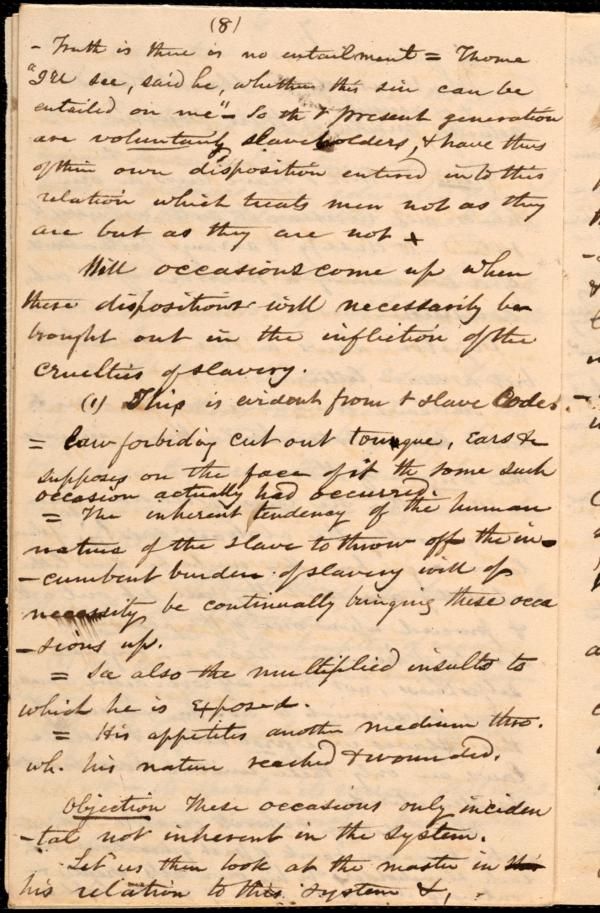 (8)
- Truth is there is no entailment = Thome
"I'll see, said he, whether this sin can be
entailed on me" - So th t present generation
are voluntary slaveholders, & have thus
of their own disposition entered into this
relation which treats men not as they
are but as they are not +
Will occasions come up when
these dispositions will necessarily be
brought out in the infliction of the
cruelties of slavery.
(1) This is evident from t slave Codes.
= Law forbiding cut out tongue, Ears &c
supposes on the face of it th some such
occasion actually had occurred.
= The inherent tendency of the human
nature of the slave to throw off the in-
-cumbent burden of slavery will of
necessity be continually bringing these occa
-sions up.
= So also the multiplied insults to
which he is exposed.
= His appetites another medium thro.
wh. his nature reached & wounded.
Objection These occasions only inciden
-tal not inherent in the system.
Let us then look at the master in
his relation to this system &,